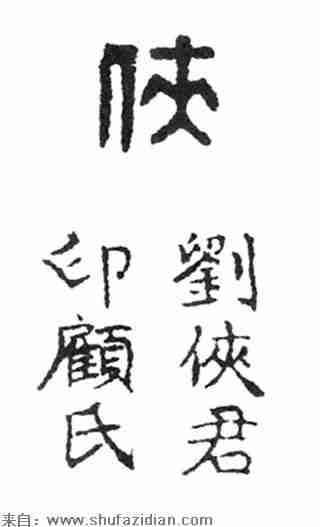 侠
劉俠君
印顧氏
来自：www.shufazidian.com